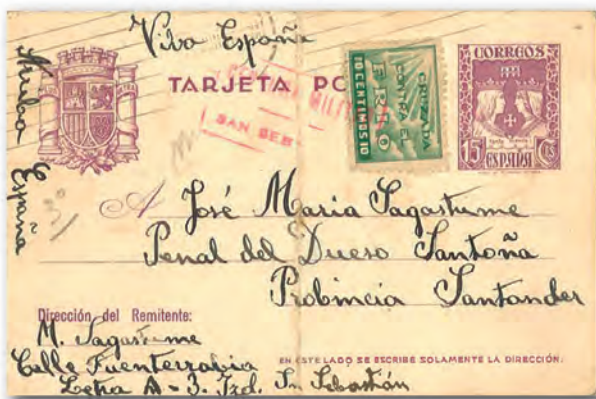 Viva España
Arriba España
TARJETA PO
MILITAR
SAN SEB
CRUZADA
CONTRA EL
FRIO
10 CENTIMOS 10
CORREOS
15 Cs
ESPAÑA
3º
A José Maria Sagastume
Penal del Dueso Santoña
Probincia Santander
Dirección del Remitente:
M. Sagastume
Calle Fuenterrabia
Letra A - 3. Izd. Sn Sebastián
EN ESTE LADO SE ESCRIBE SOLAMENTE LA DIRECCIÓN.